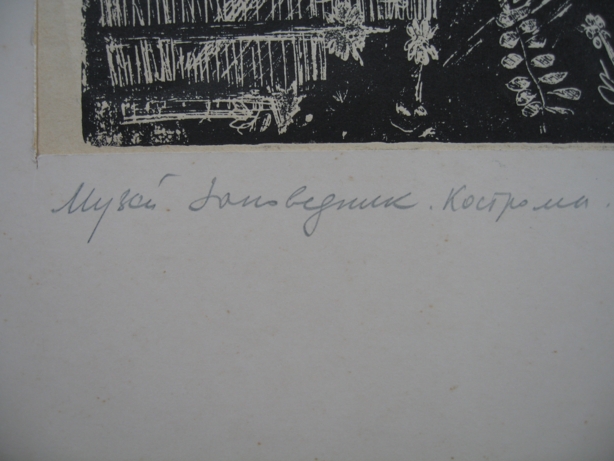 Музей. Заповедник. Кострома.